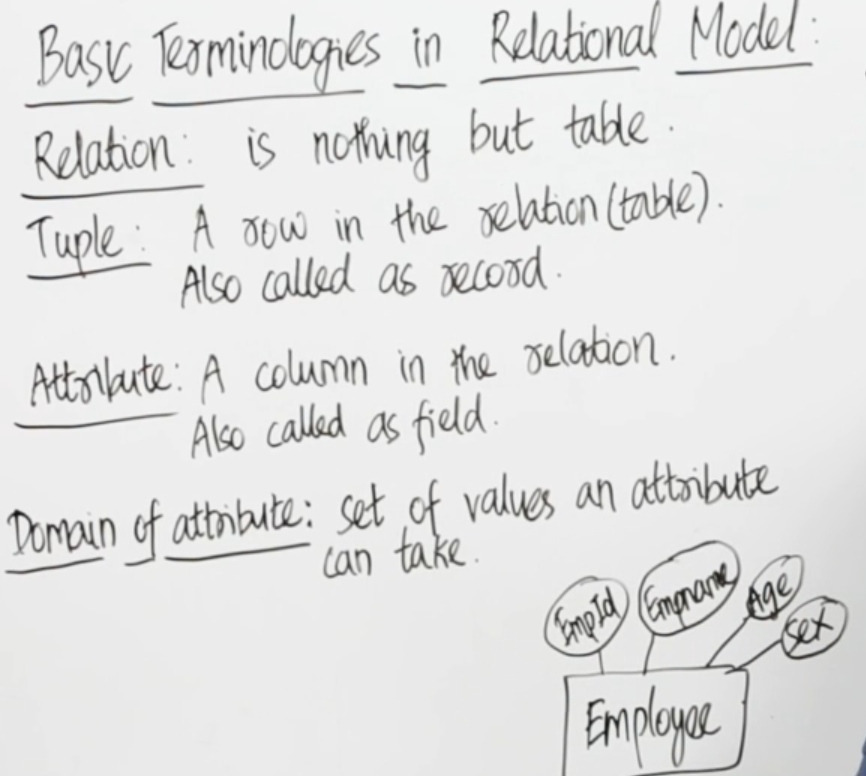 Basic Terminologies in Relational Model:
Relation: is nothing but table.
Tuple: A row in the relation (table).
Also called as record.
Attribute: A column in the relation.
Also called as field.
Domain of attribute: set of values an attribute
can take.
EmpId Empname Age Sex
Employee